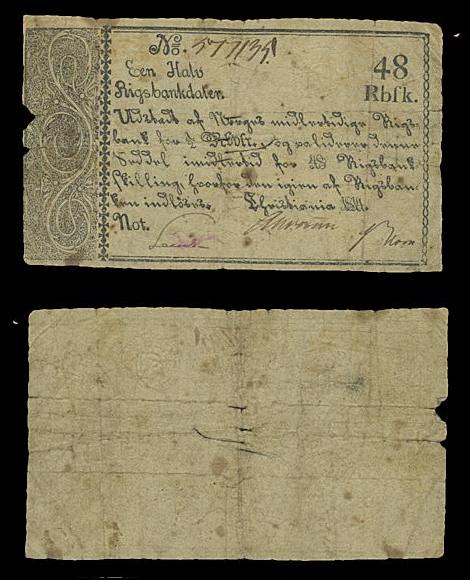 No. 577135.
Een Halv
Rigsbankdaler.
48
Rbſk.
Udstædt af Norges midlertidige Rigs-
bank for ½ og validerer denne
Seddel imidlertid for 48 Rigsbank
ſkilling, hvorfor den igien af Rigsban-
ken indlöses. Christiania 1814.
Not.